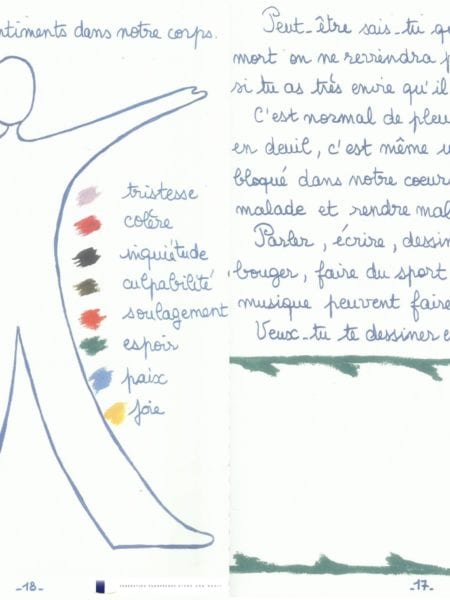 ntiments dans notre corps.
tristesse
colère
inquiétude
culpabilité
soulagement
espoir
paix
joie
-18-
Peut-être sais-tu qu
mort on ne reviendra p
si tu as très envie qu'il
C'est normal de pleu
en deuil, c'est même u
bloqué dans notre coeur
malade et rendre mal
Parler, écrire, dessin
bouger, faire du sport
musique peuvent faire
Veux-tu te dessiner e
-17-